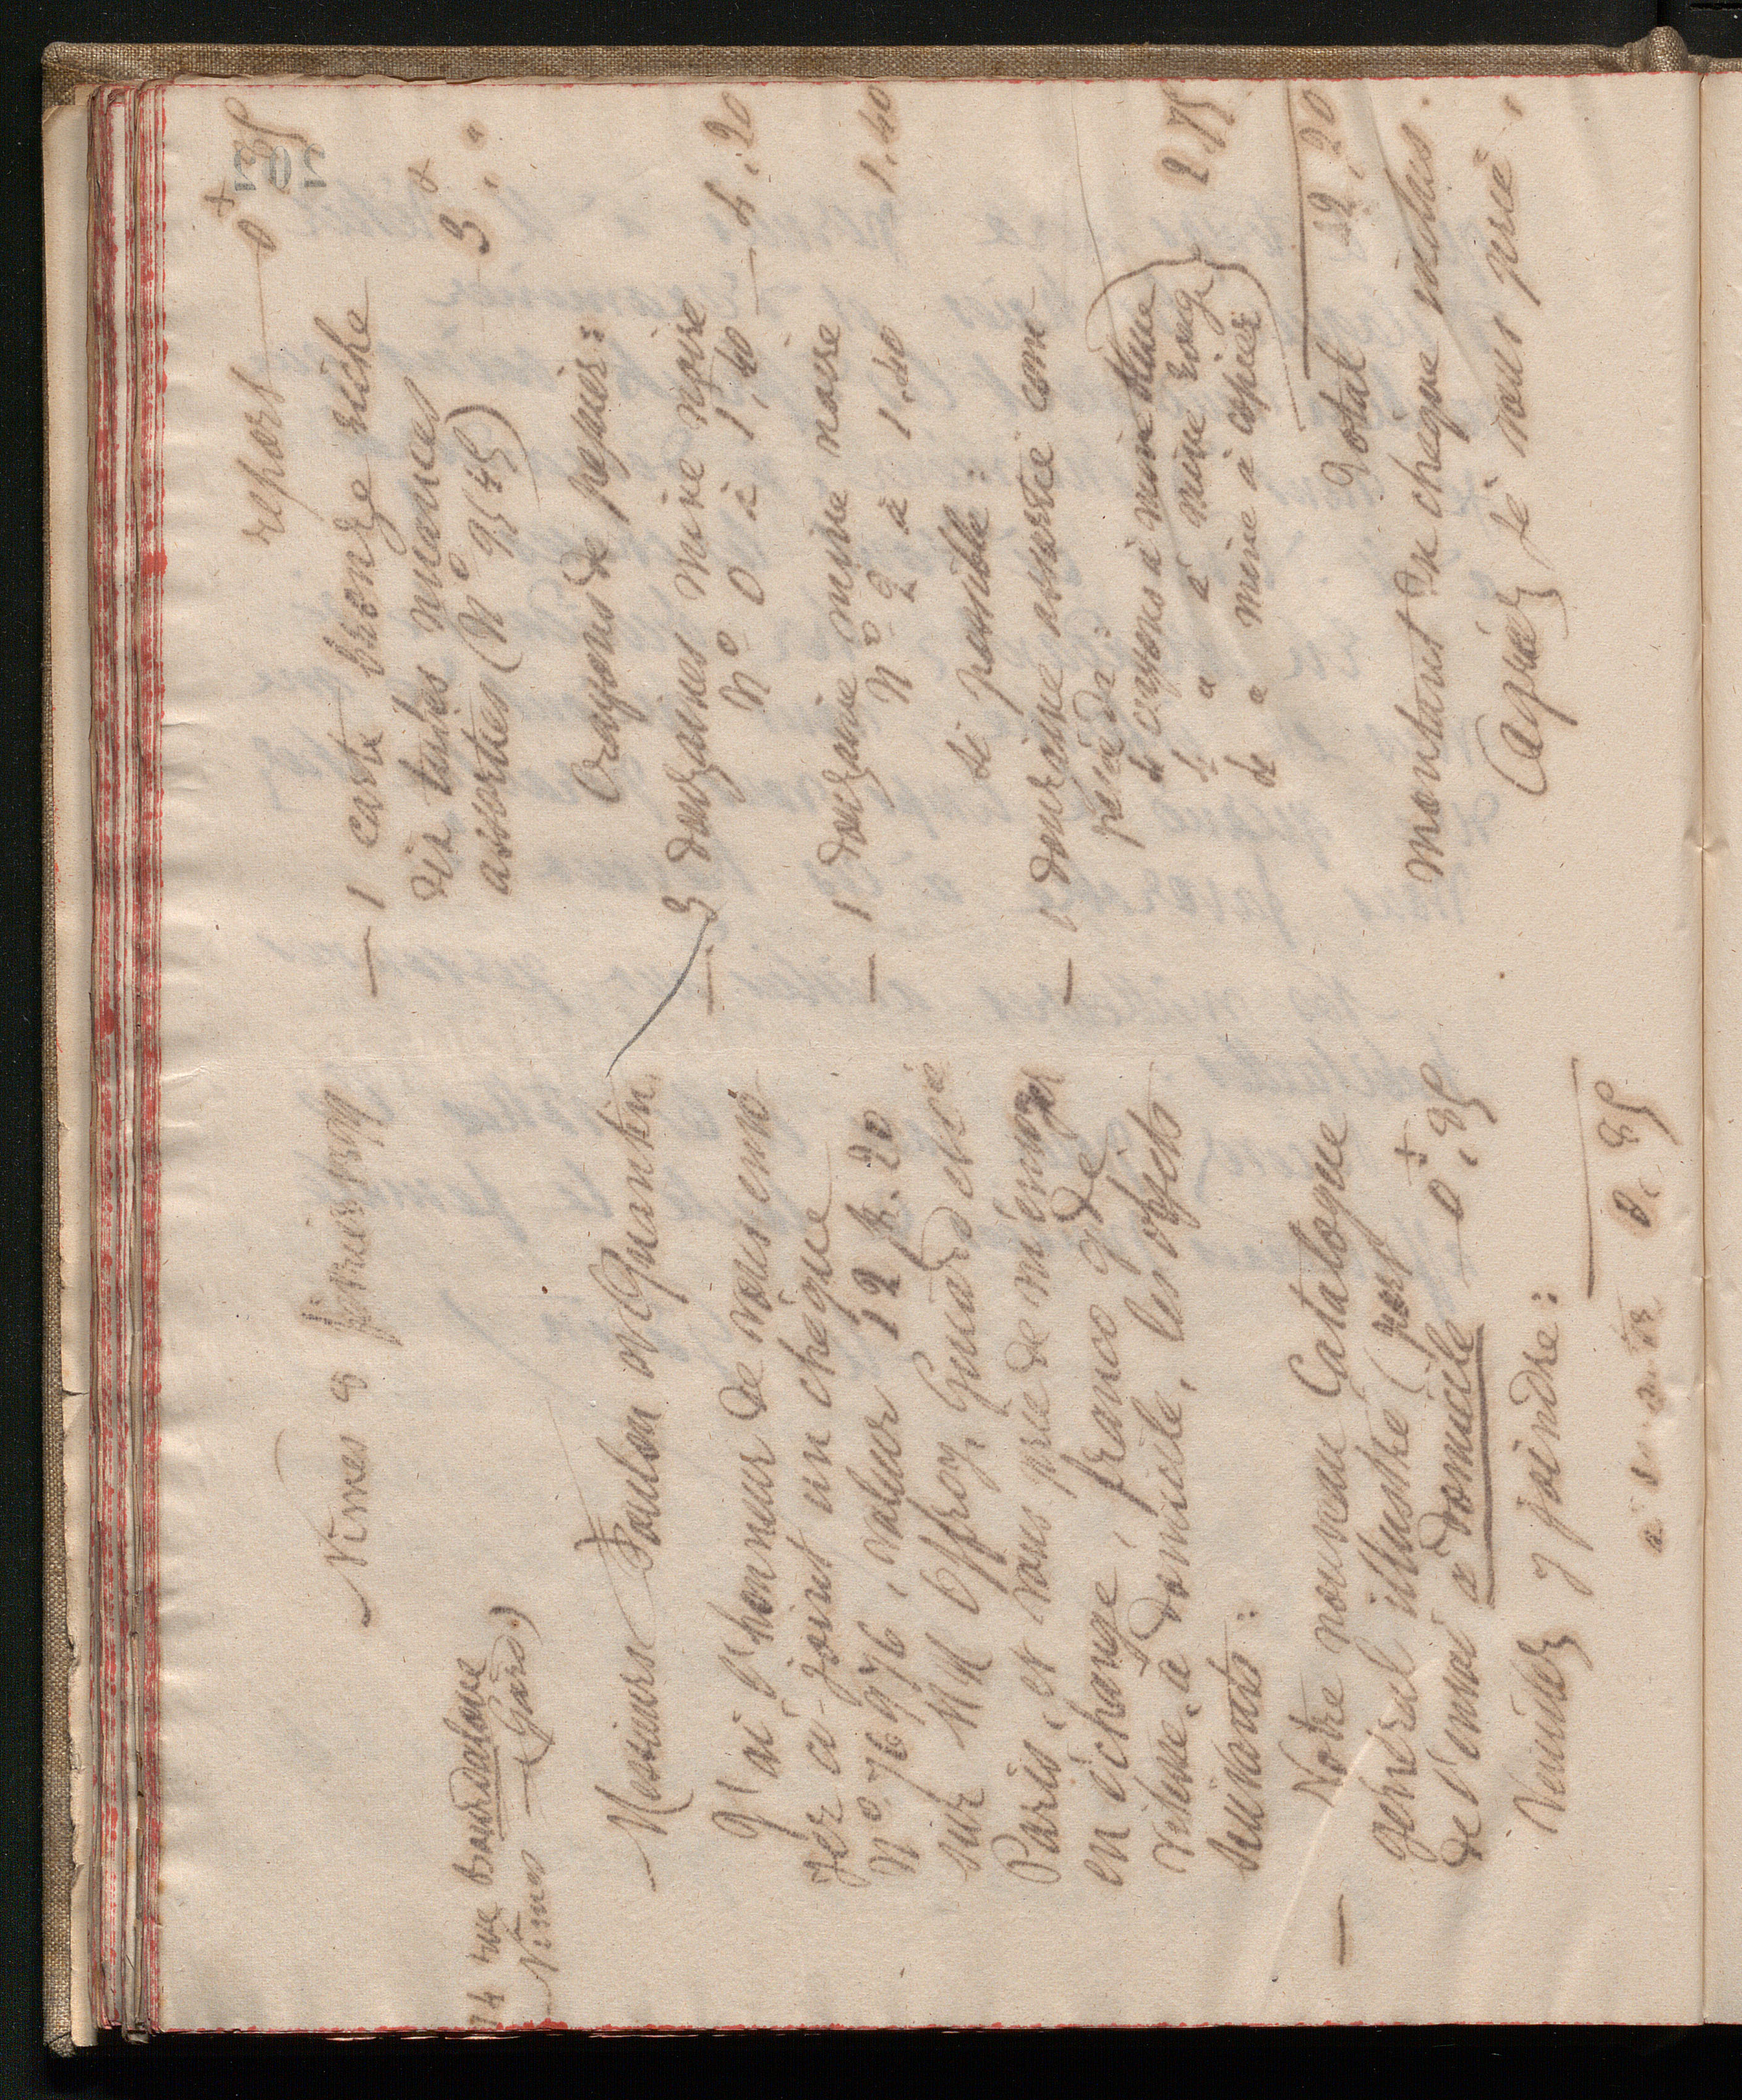 Nimes 8 février 1899
14 rue Bourdaloue
Nimes — (Gard)
Messieurs Poulon et Quantin
J'ai l'honneur de vous envo
yer ci-joint un chèque
N° 76976, valeur 12 fr. 20
sur MM Offroy, Guiard et Cie
Paris, et vous prie de m'envoyer
en échange, franco gde
vitesse, à domicile, les objets
suivants :
— Notre nouveau Catalogue
général illustré (port
de l'envoi à domicile — 0,85
Veuillez y joindre :
à suivre 0,85
report — 0,85
— 1 carte bronze riche
dix tubes nuances
assorties (N° 9545) 3, "
Crayons de papier :
— 3 douzaines mine noire
N° 0 à 1,40 — 4,20
— 1 douzaine mine noire
N° 2 à 1,40 1,40
si possible :
— 1 douzaine assortie com
posée de :
de crayons à mine bleue
de " à mine rouge
de " mine à copier 2,75
Total 12,20
montant du chèque inclus.
Agréez, je vous prie,